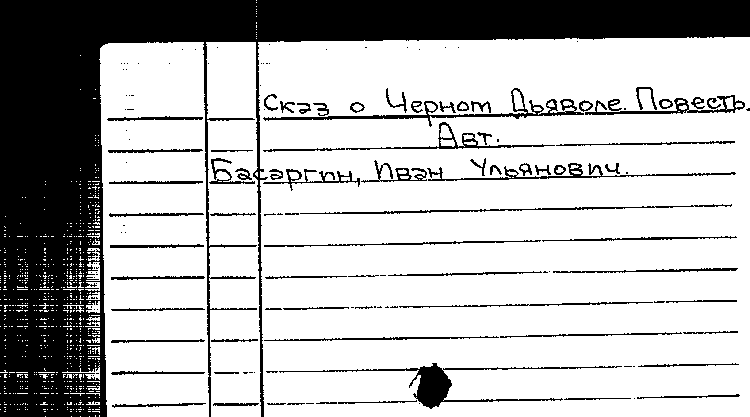 Сказ о Черном Дьяволе. Повесть.
Авт.
Басаргин, Иван Ульянович.